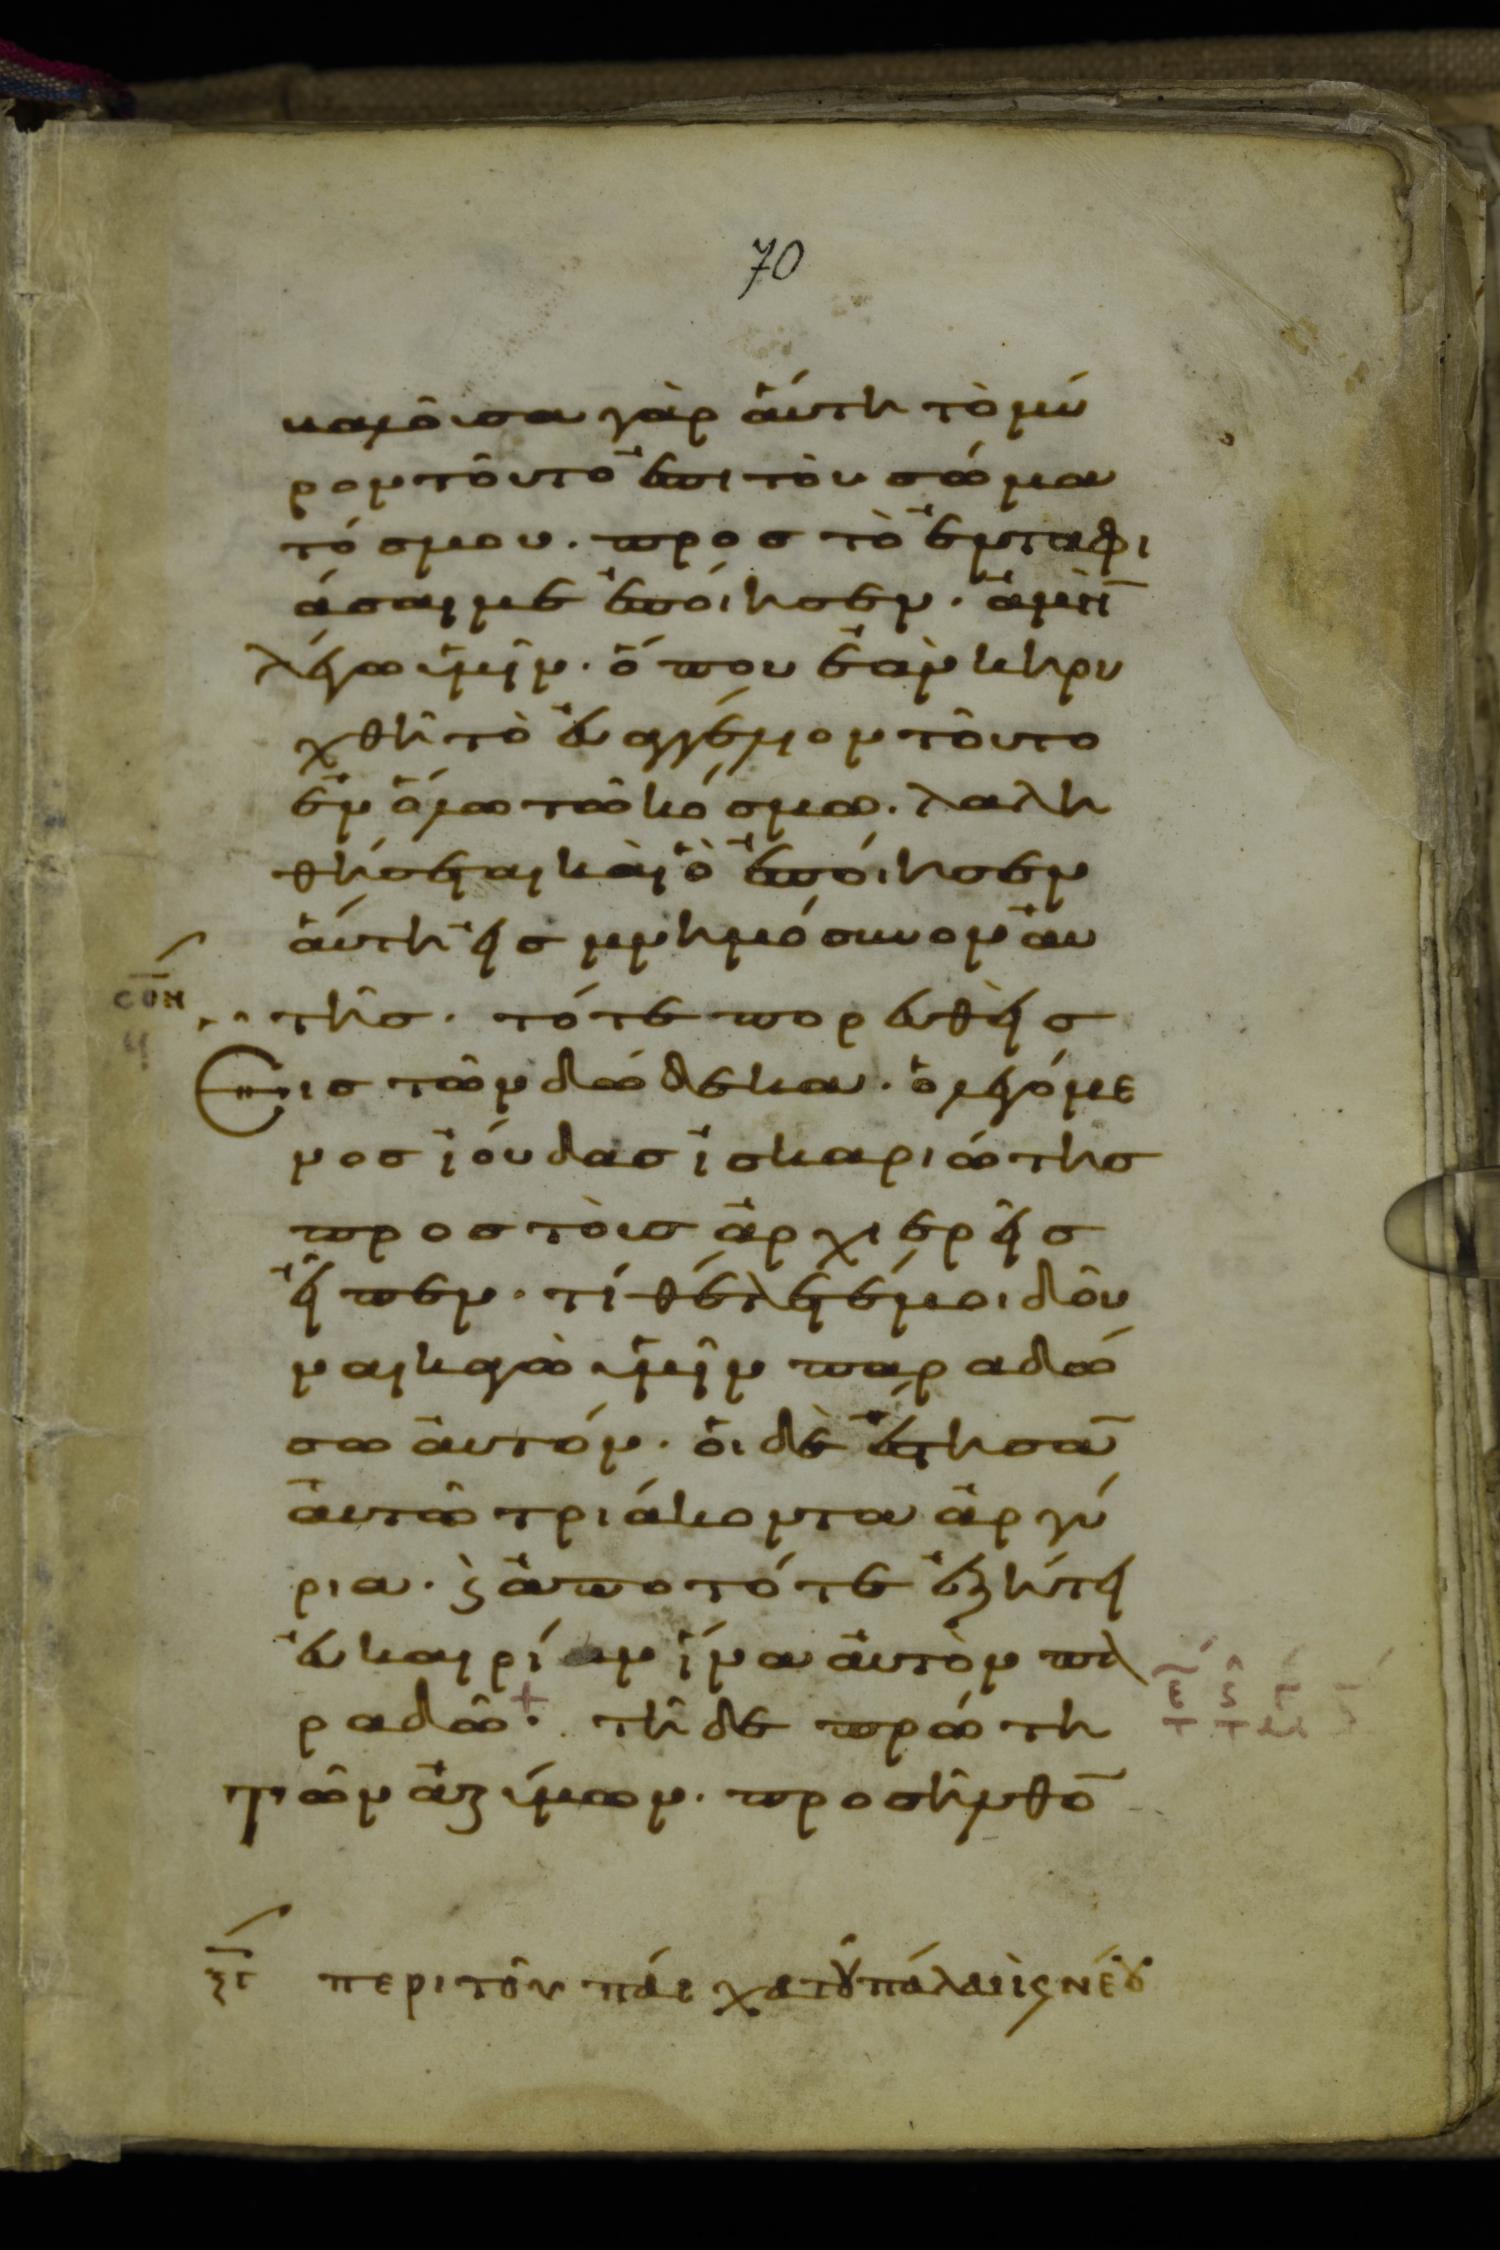 70
καλοῦσα γὰρ ἅυτη τὸ μύ
ρον τοῦτο ἐπι τοῦ σώμα
τός μου. προσ τὸ ἐνταφι
άσαι με ἐποίησεν. ἀμὴ̄
λέγω ὑμῖν. ὅπου ἐὰν κηρυ
χθῆ τὸ ἐυαγγέλιον τοῦτο
ἐν ὅλω τῶ κόσμω. λαλη
θήσεται καὶ ὃ ἐποίησεν
ἅυτη εἰσ μνημόσυνον ἀυ
τῆσ. τότε πορευθεὶσ
Εισ τῶν δώδεκα. ὁ λεγόμε
νοσ ἰούδασ ἰσκαριώτησ
προσ τοὺσ ἀρχιερεῖσ
εἶπεν. τί θέλετέ μοι δοῦ
ναι κἀγὼ ὑμῖν παραδώ
σω ἀυτόν. ὁι δὲ ἔστησᾱ
ἀυτῶ τριάκοντα ἀργύ
ρια. ϗ ἀπο τότε ἐζήτει
ἐυκαιρίαν ἵνα ἀυτὸν πα
ραδῶ. + τῆ δε πρώτη
τῶν ἀζύμων. προσῆλθο̄
ξγ περι τοῦ πάσχα τοῦ παλαι ϗ νέου